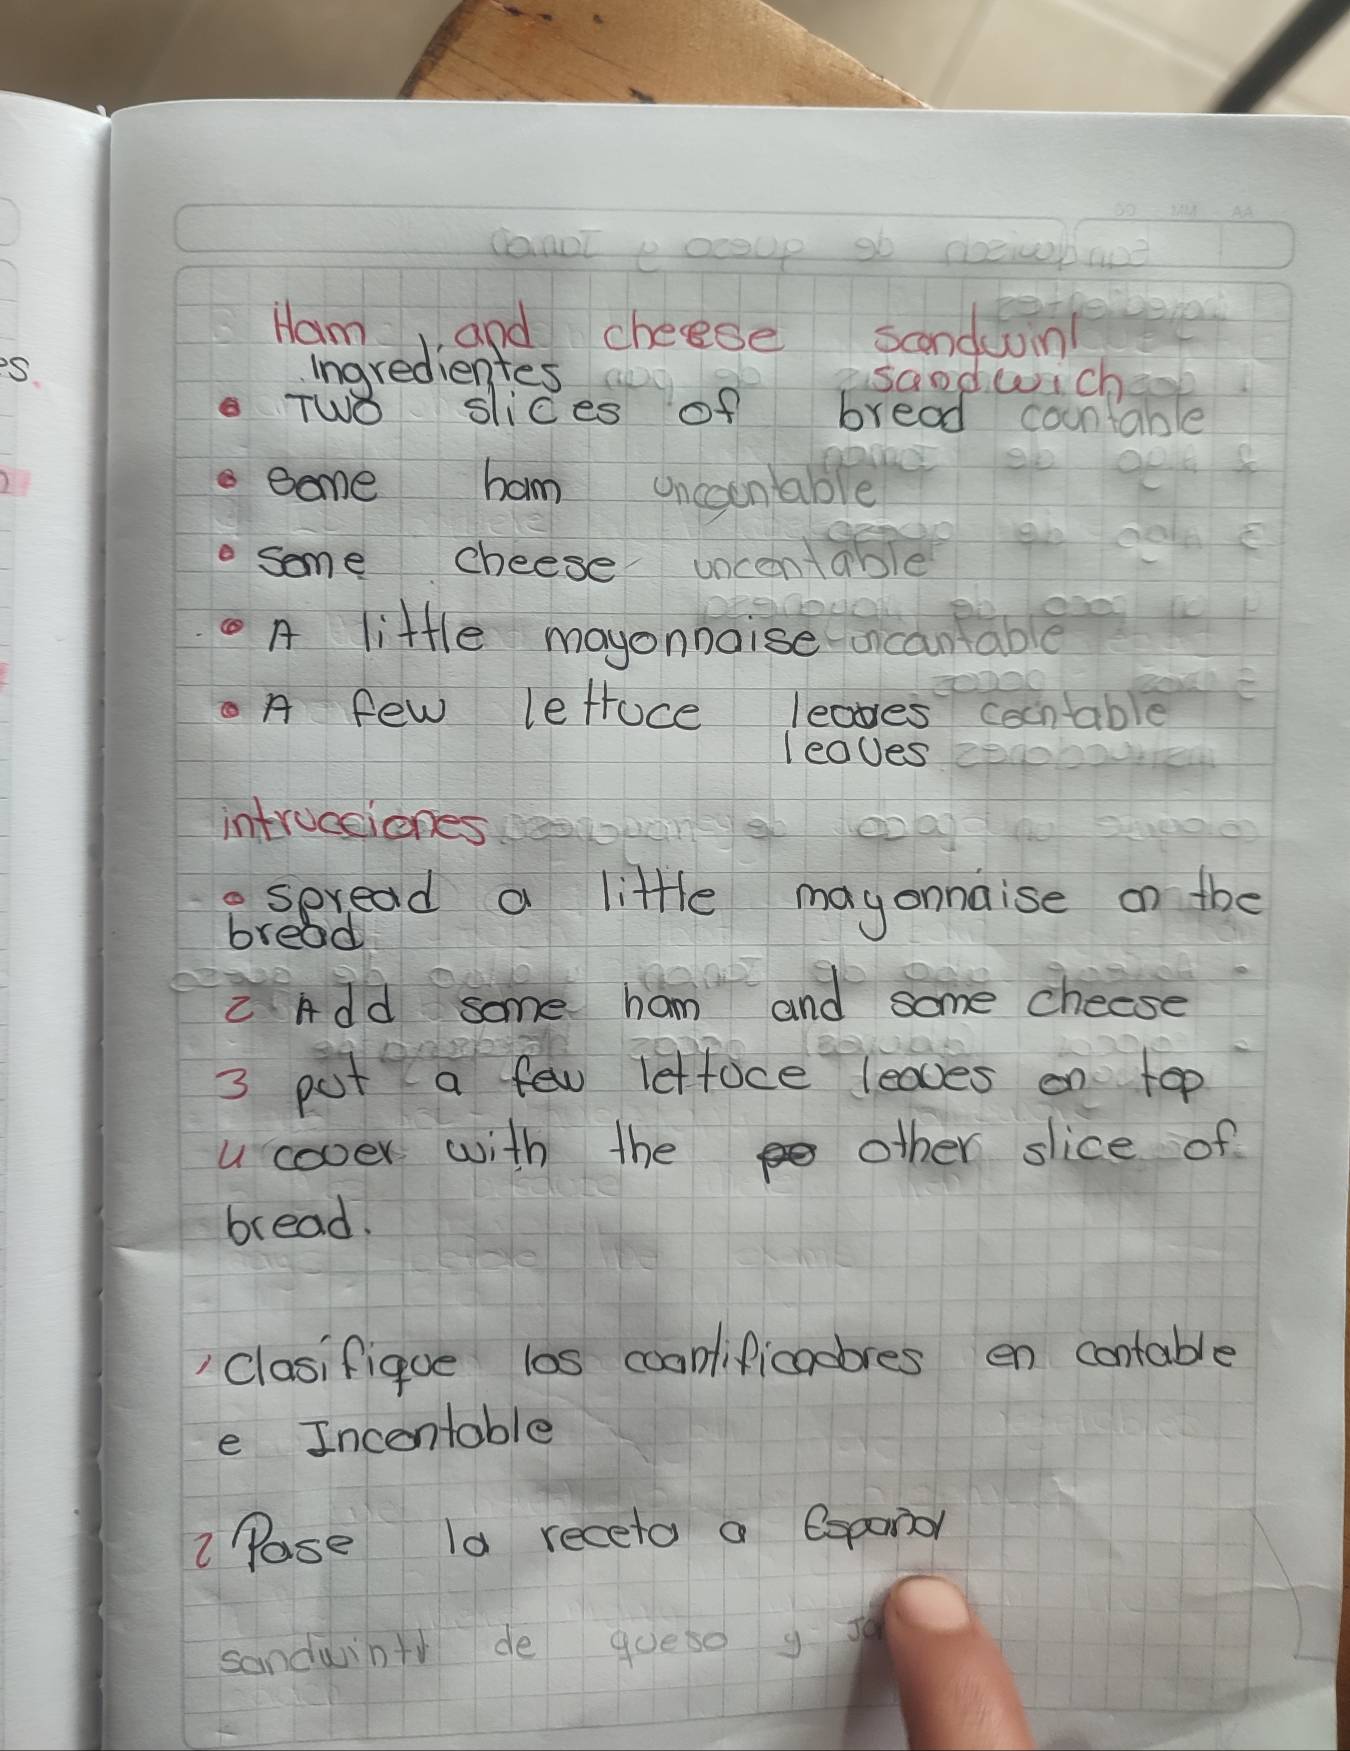 Ham and cheese sandwinl
sandwich
Ingredientes
Two slices of bread countable
some ham uncountable
some cheese uncontable
A little mayonnaise uncantable
A few lettuce leaves countable
leaves
intrucciones
spread a little mayonnaise on the
bread
2 Add some ham and some cheese
3 put a few lettuce leaves on top
4 cover with the other slice of
bread.
1 Clasifique los coantificadores en contable
e Incontable
2 Pase la receta a Español
de queso y
es.